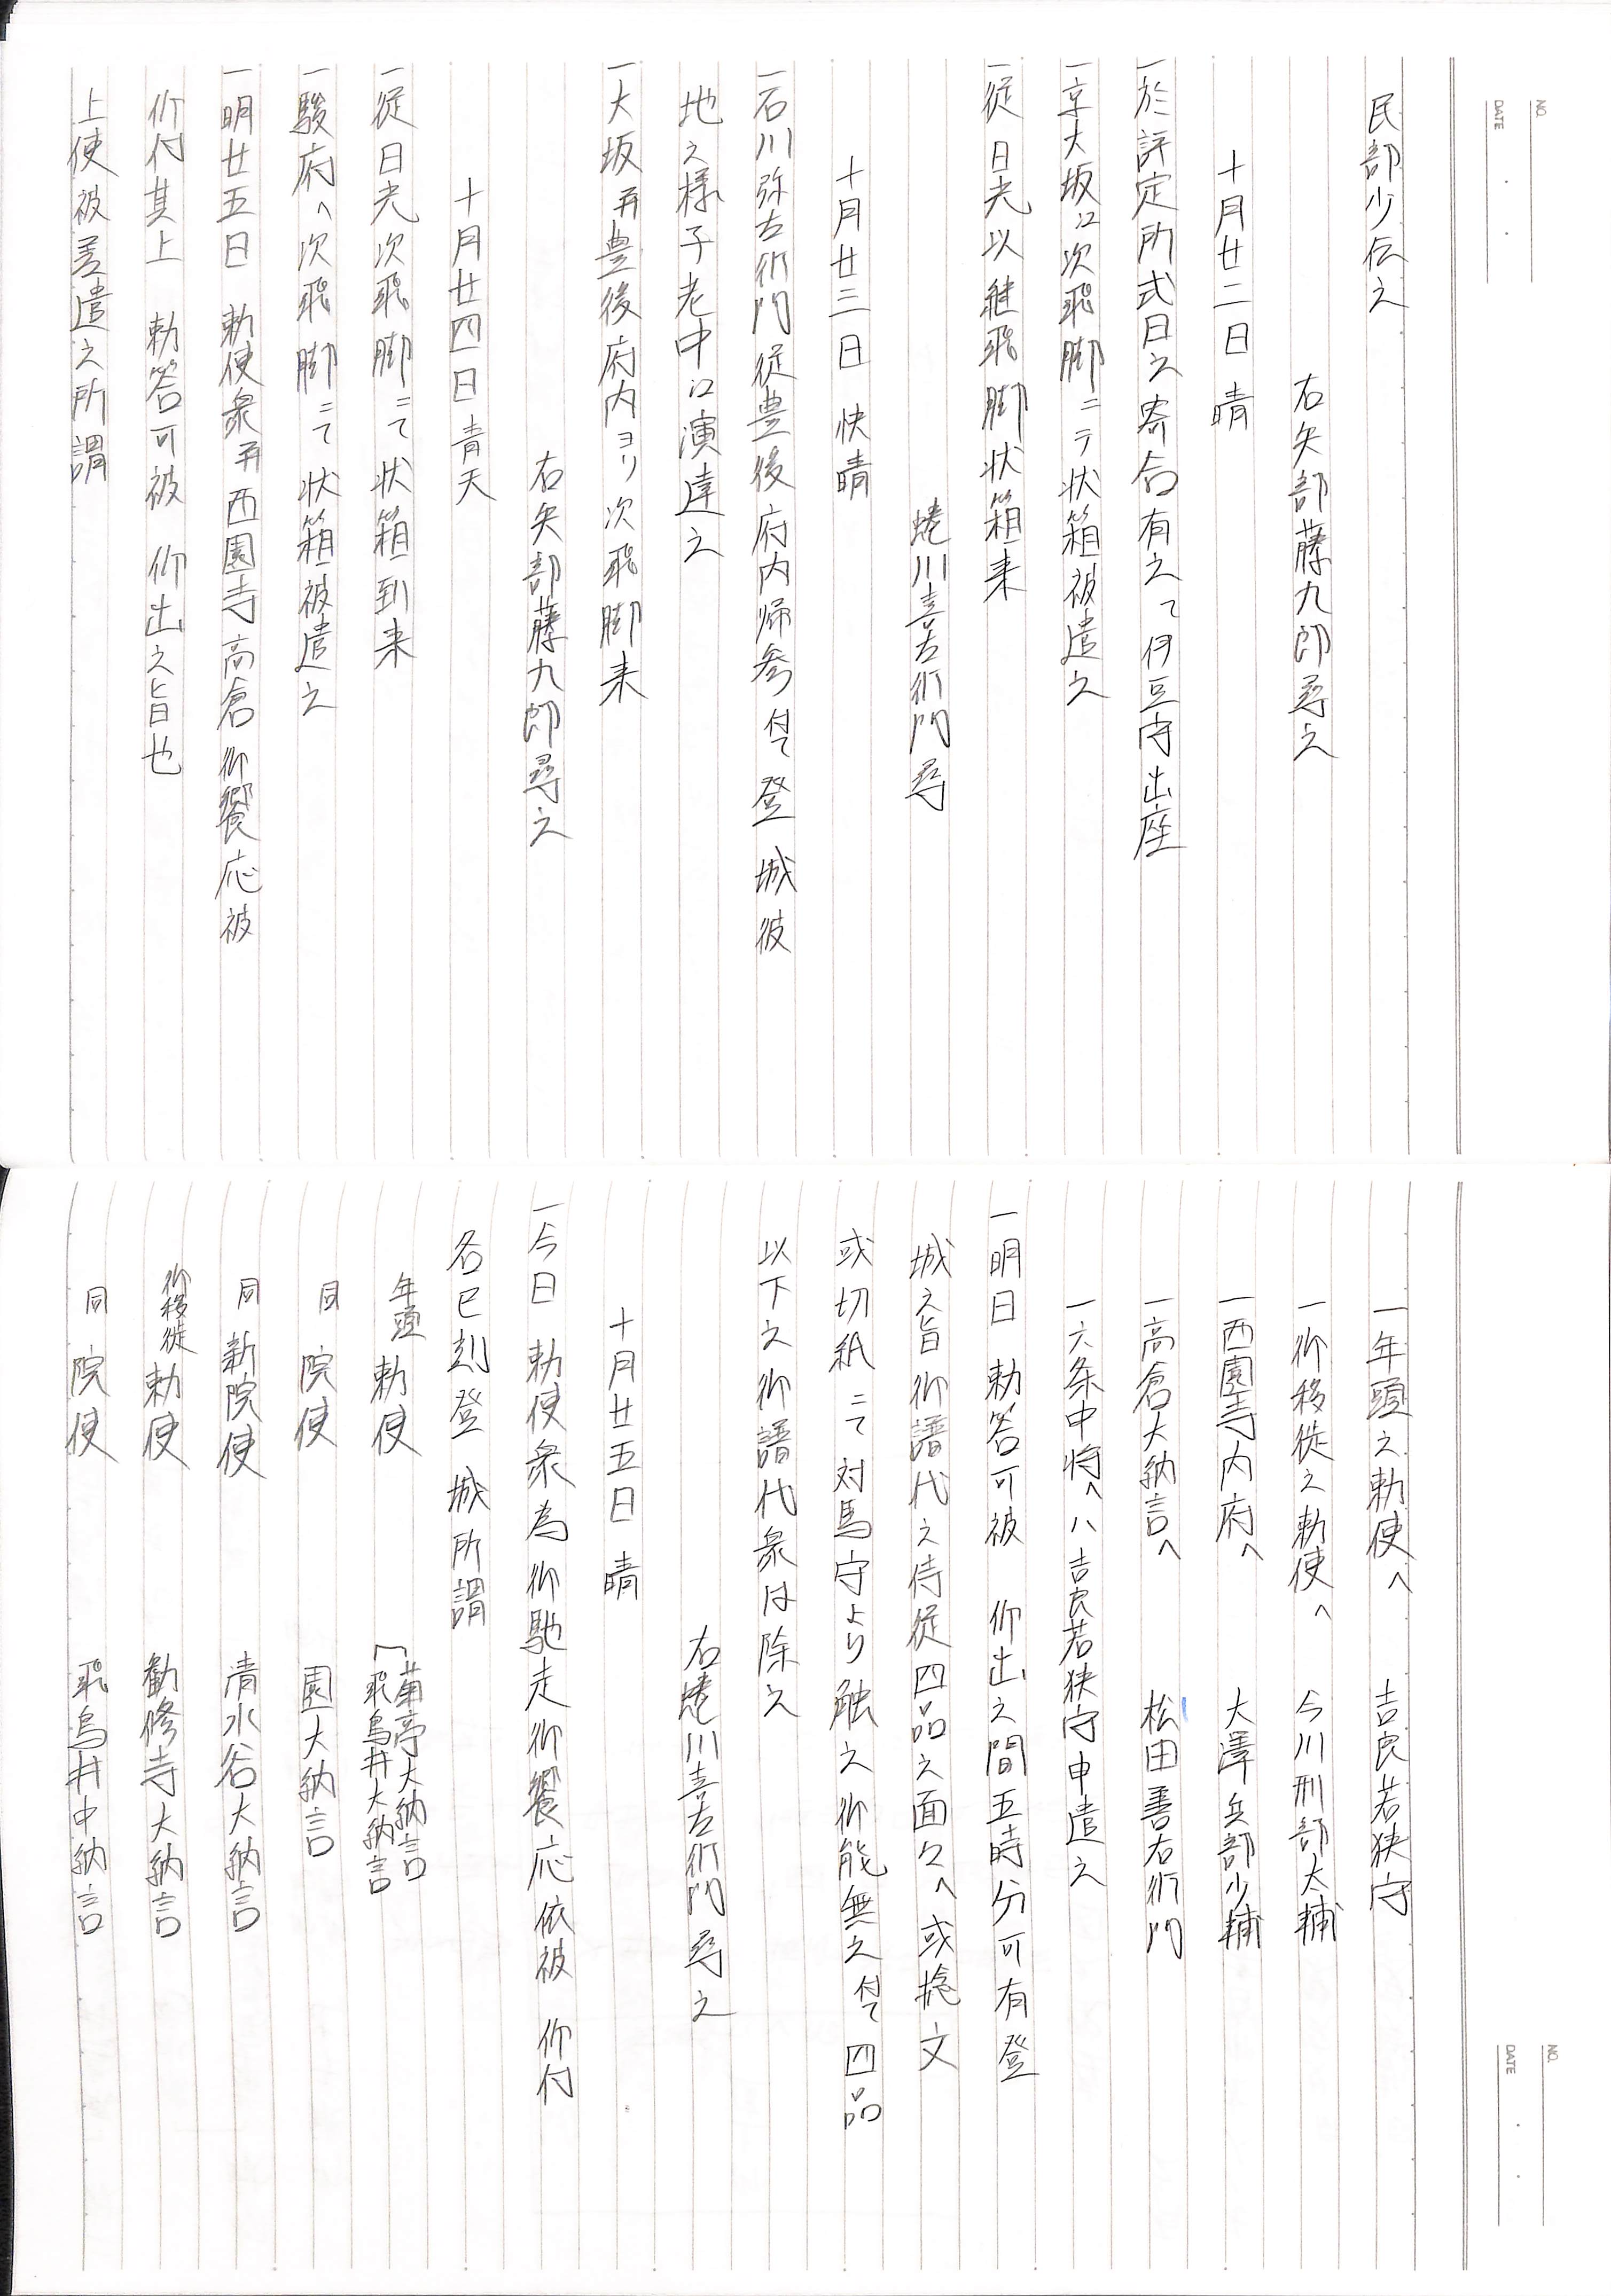 民部少伝之
右矢部藤九郎尋之
十月廿二日 晴
一於評定所式日之寄合有之て伊豆守出座
一京大坂江次飛脚ニテ状箱被遣之
一従日光以継飛脚状箱来
蜷川喜左衛門尋
十月廿三日 快晴
一石川弥左衛門従豊後府内帰参付て登 城彼
地之様子老中江演達之
一大坂并豊後府内ヨリ次飛脚来
右矢部藤九郎尋之
十月廿四日 青天
一従日光次飛脚ニて状箱到来
一駿府へ次飛脚ニて状箱被遣之
一明廿五日 勅使衆并西園寺高倉御饗応被
仰付其上 勅答可被 仰出之旨也
上使被差遣之所謂
一年頭之勅使へ 吉良若狭守
一御移徙之勅使へ 今川刑部太輔
一西園寺内府へ 大澤兵部少輔
一高倉大納言へ 松田善右衛門
一六条中将へハ吉良若狭守申遣之
一明日 勅答可被 仰出之間五時分可有登
城之旨御譜代之侍従四品之面々へ或捻文
或切紙ニて対馬守より触之御能無之付て四品
以下之御譜代衆は除之
右蜷川喜左衛門尋之
十月廿五日 晴
一今日 勅使衆為御馳走御饗応依被 仰付
各巳刻登 城所謂
年頭 勅使 菊亭大納言
飛鳥井大納言
同 院使 園大納言
同 新院使 清水谷大納言
御移徙 勅使 勧修寺大納言
同 院使 飛鳥井中納言
NO.
DATE
NO.
DATE